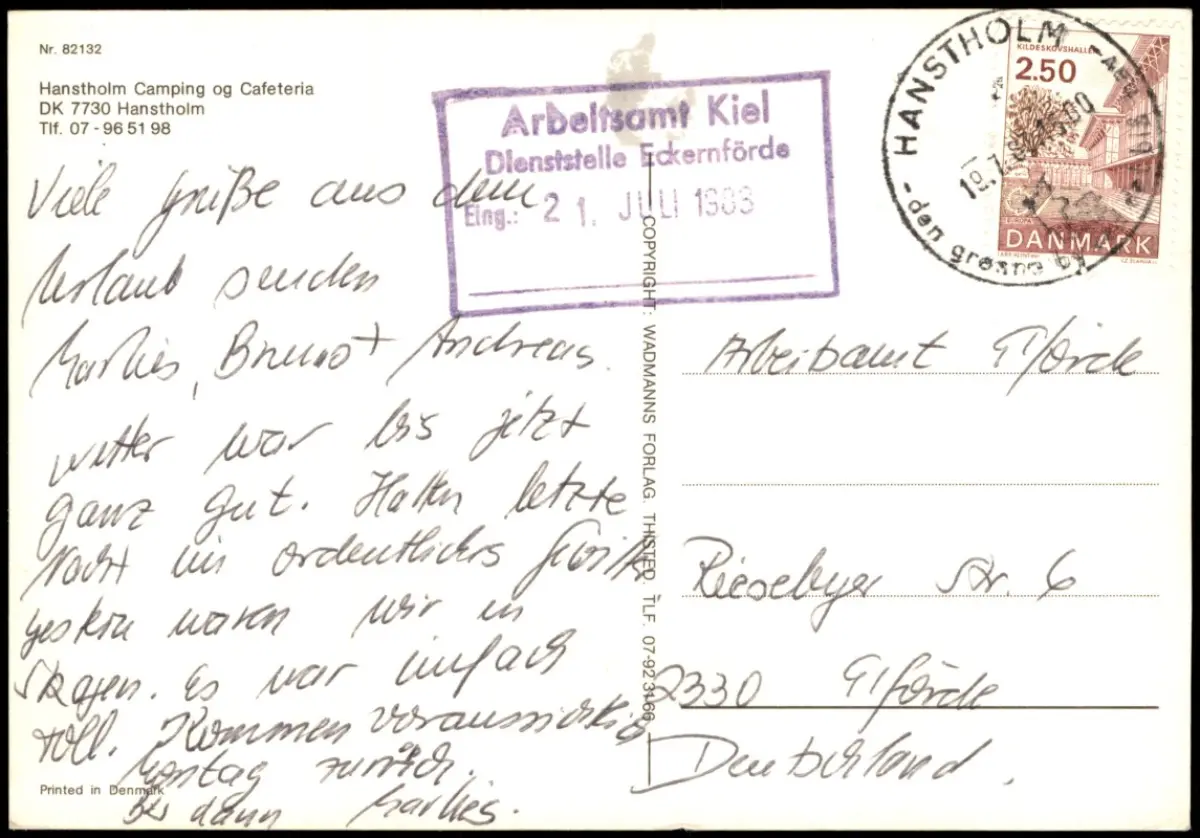 Nr. 82132
Hanstholm Camping og Cafeteria
DK 7730 Hanstholm
Tlf. 07 - 96 51 98
Viele Grüße aus dem
Urlaub senden
Marlies, Bruno + Andreas.
Wetter war bis jetzt
ganz gut. Hatten letzte
Nacht ein ordentliches
gestern waren wir in
Skagen. Es war einfach
toll. Kommen voraussichtlich
Montag zurück.
Bis dann Marlies.
Printed in Denmark
Arbeitsamt Kiel
Dienststelle Eckernförde
Eing.: 21. JULI 1983
COPYRIGHT: WADMANNS FORLAG. THISTED. TLF. 07-92 31 66
HANSTHOLM
den grønne by
KILDESKOVSHALLEN
2.50
EUROPA
DANMARK
Arbeitsamt
Rieseby Str. 6
2330
Deutschland.